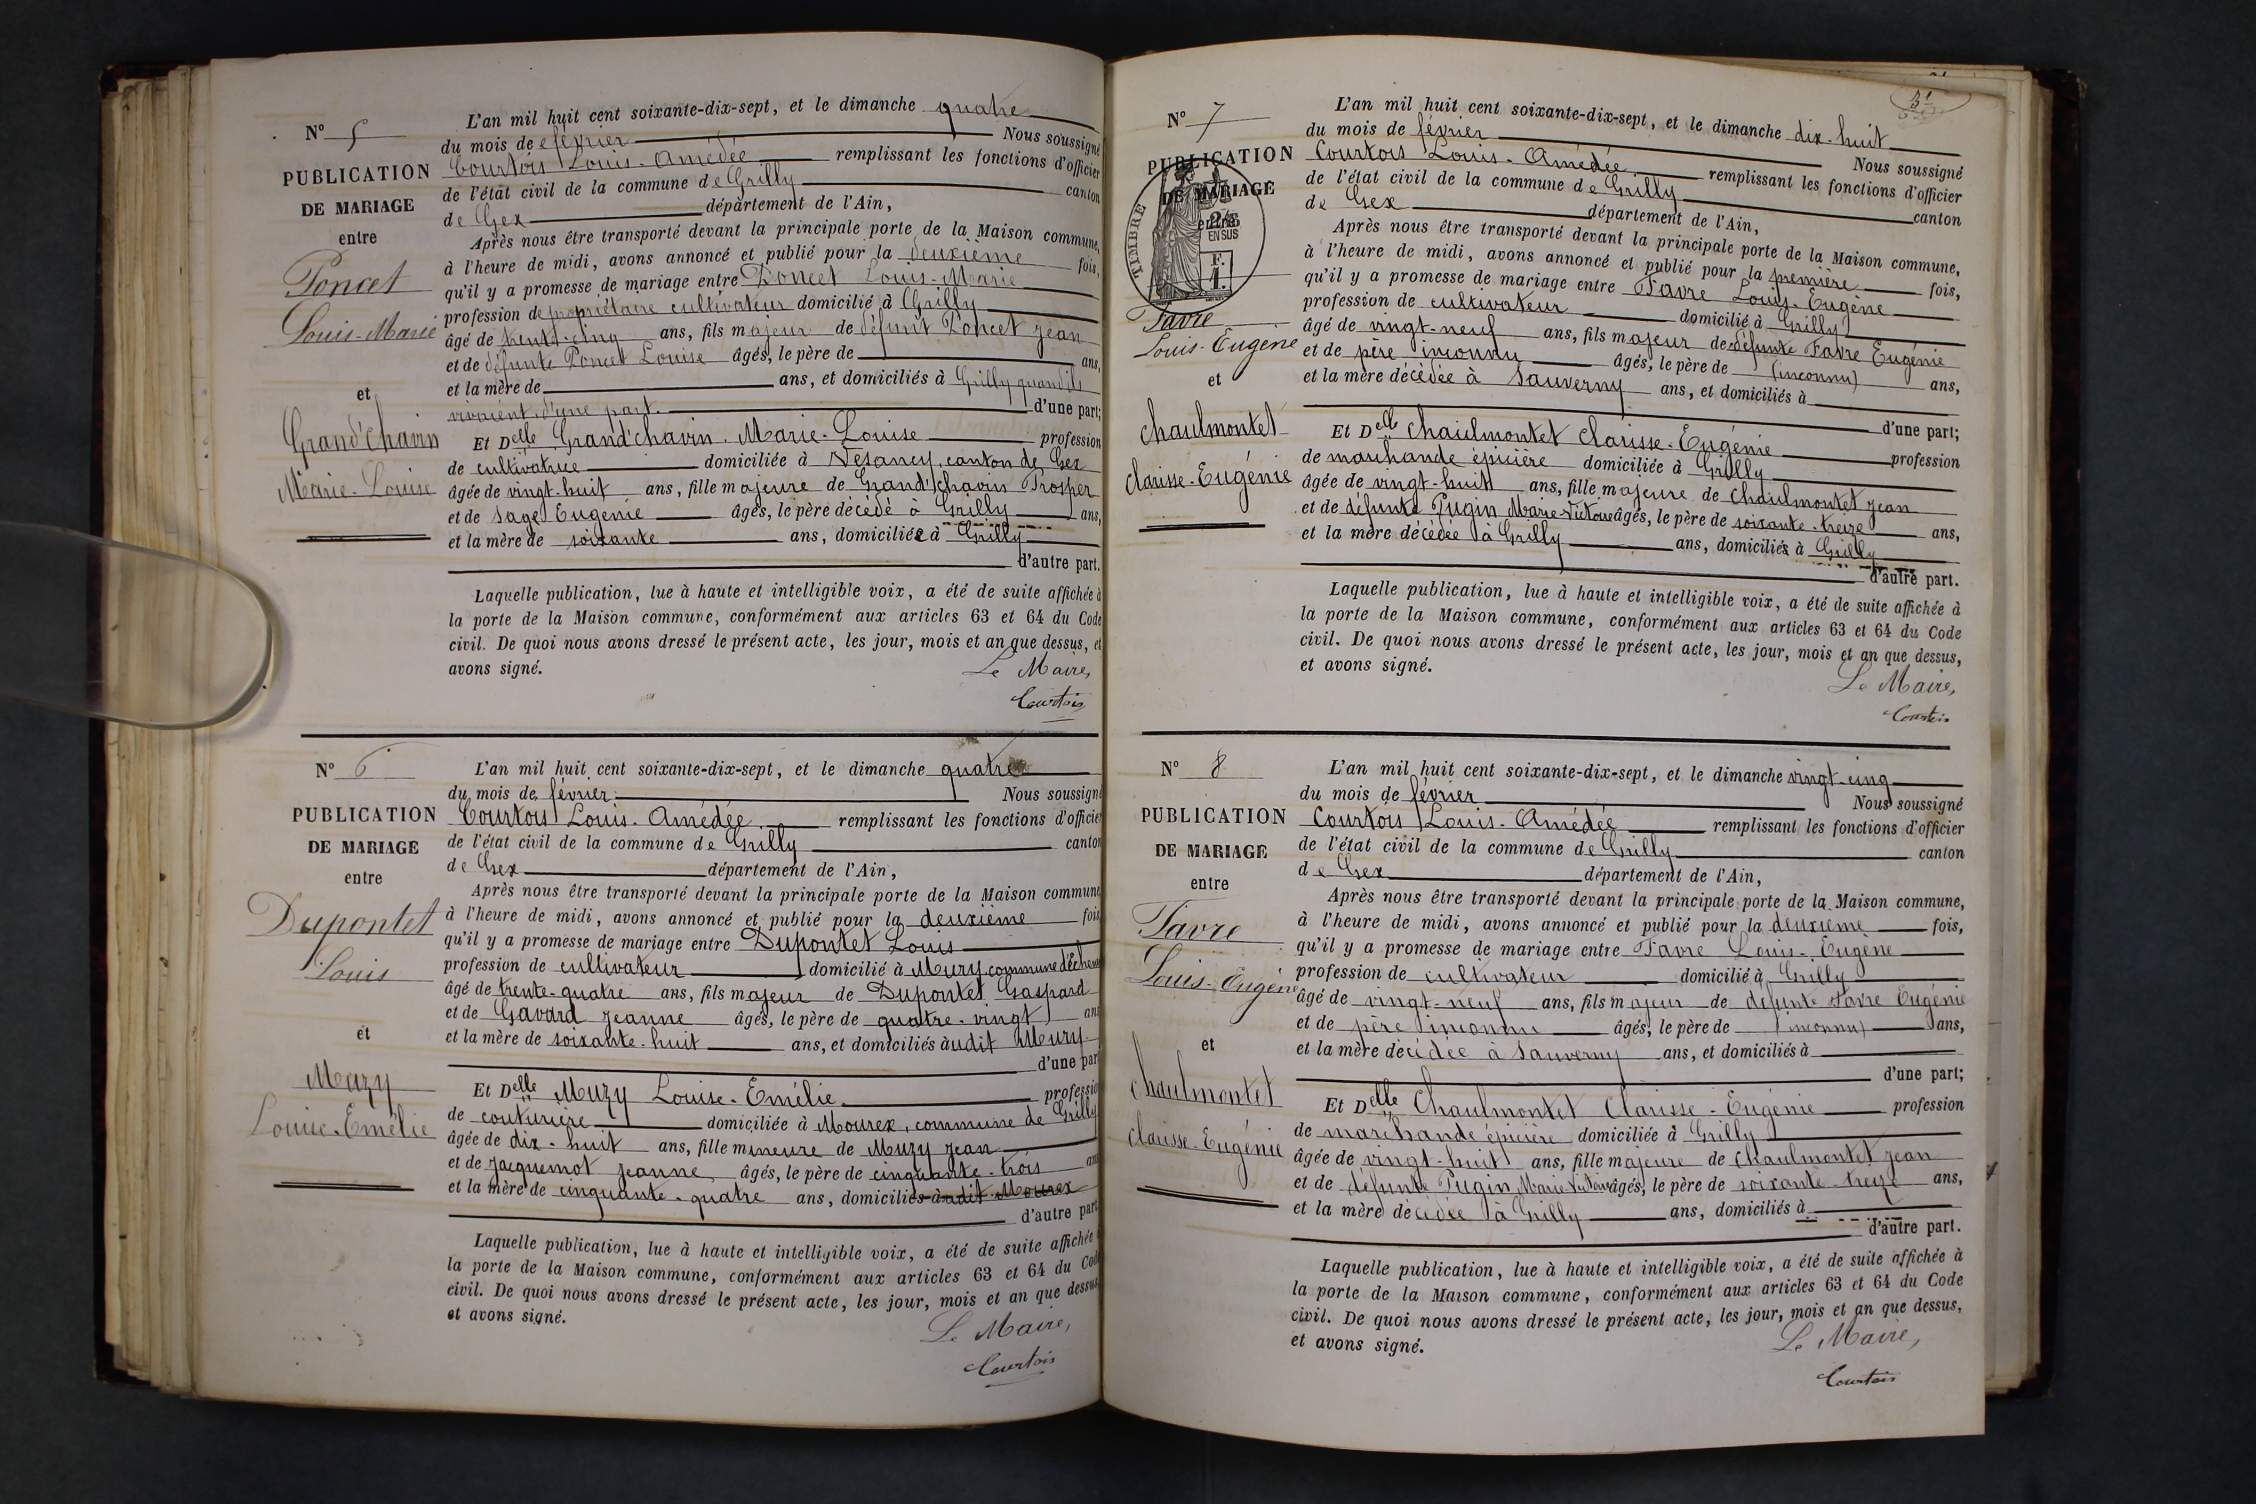 N° 5
PUBLICATION
DE MARIAGE
entre
Poncet
Louis-Marie
et
Grand'chavin
Marie-Louise
L'an mil huit cent soixante-dix-sept, et le dimanche quatre
du mois de février Nous soussigné
Courtois Louis-Amédée remplissant les fonctions d'officier
de l'état civil de la commune de Grilly canton
de Gex département de l'Ain,
Après nous être transporté devant la principale porte de la Maison commune,
à l'heure de midi, avons annoncé et publié pour la deuxième fois,
qu'il y a promesse de mariage entre Poncet Louis-Marie
profession de propriétaire cultivateur domicilié à Grilly
âgé de trente-cinq ans, fils majeur de défunt Poncet Jean
et de défunte Poncet Louise âgés, le père de ans,
et la mère de ans, et domiciliés à Grilly quand ils
vivaient d'une part. d'une part;
Et Delle Grand'chavin Marie-Louise profession
de cultivatrice domiciliée à Vesancy, canton de Gex
âgée de vingt-huit ans, fille majeure de Grand'chavin Prosper
et de Sage Eugénie âgés, le père décédé à Grilly ans,
et la mère de soixante ans, domiciliée à Grilly
d'autre part.
Laquelle publication, lue à haute et intelligible voix, a été de suite affichée à
la porte de la Maison commune, conformément aux articles 63 et 64 du Code
civil. De quoi nous avons dressé le présent acte, les jour, mois et an que dessus, et
avons signé.
Le Maire,
Courtois
N° 6
PUBLICATION
DE MARIAGE
entre
Dupontet
Louis
et
Muzy
Louise-Emélie
L'an mil huit cent soixante-dix-sept, et le dimanche quatre
du mois de février Nous soussigné
Courtois Louis-Amédée remplissant les fonctions d'officier
de l'état civil de la commune de Grilly canton
de Gex département de l'Ain,
Après nous être transporté devant la principale porte de la Maison commune
à l'heure de midi, avons annoncé et publié pour la deuxième fois
qu'il y a promesse de mariage entre Dupontet Louis
profession de cultivateur domicilié à Mury commune d'Echenevex
âgé de trente-quatre ans, fils majeur de Dupontet Gaspard
et de Gavard Jeanne âgés, le père de quatre-vingt ans
et la mère de soixante-huit ans, et domiciliés audit Mury
d'une part
Et Delle Muzy Louise-Emélie profession
de couturière domiciliée à Mourex, commune de Grilly
âgée de dix-huit ans, fille mineure de Muzy Jean
et de Jacquemot Jeanne âgés, le père de cinquante-trois ans
et la mère de cinquante-quatre ans, domiciliés audit Mourex
d'autre part
Laquelle publication, lue à haute et intelligible voix, a été de suite affichée
la porte de la Maison commune, conformément aux articles 63 et 64 du Code
civil. De quoi nous avons dressé le présent acte, les jour, mois et an que dessus
et avons signé.
Le Maire,
Courtois
3e
N° 7
PUBLICATION
DE MARIAGE
entre
TIMBRE
EN SUS
F.
1.
Favre
Louis-Eugène
et
Chaulmontet
Clarisse-Eugénie
L'an mil huit cent soixante-dix-sept, et le dimanche dix-huit
du mois de février Nous soussigné
Courtois Louis-Amédée remplissant les fonctions d'officier
de l'état civil de la commune de Grilly canton
de Gex département de l'Ain,
Après nous être transporté devant la principale porte de la Maison commune,
à l'heure de midi, avons annoncé et publié pour la première fois,
qu'il y a promesse de mariage entre Favre Louis-Eugène
profession de cultivateur domicilié à Grilly
âgé de vingt-neuf ans, fils majeur de défunte Favre Eugénie
et de père inconnu âgés, le père de (inconnu) ans,
et la mère décédée à Sauverny ans, et domiciliés à
d'une part;
Et Delle Chaulmontet Clarisse-Eugénie profession
de marchande épicière domiciliée à Grilly
âgée de vingt-huit ans, fille majeure de Chaulmontet Jean
et de défunte Pugin Marie-Victoire âgés, le père de soixante-treize ans,
et la mère décédée à Grilly ans, domiciliés à Grilly
d'autre part.
Laquelle publication, lue à haute et intelligible voix, a été de suite affichée à
la porte de la Maison commune, conformément aux articles 63 et 64 du Code
civil. De quoi nous avons dressé le présent acte, les jour, mois et an que dessus,
et avons signé.
Le Maire,
Courtois
N° 8
PUBLICATION
DE MARIAGE
entre
Favre
Louis-Eugène
et
Chaulmontet
Clarisse-Eugénie
L'an mil huit cent soixante-dix-sept, et le dimanche vingt-cinq
du mois de février Nous soussigné
Courtois Louis-Amédée remplissant les fonctions d'officier
de l'état civil de la commune de Grilly canton
de Gex département de l'Ain,
Après nous être transporté devant la principale porte de la Maison commune,
à l'heure de midi, avons annoncé et publié pour la deuxième fois,
qu'il y a promesse de mariage entre Favre Louis-Eugène
profession de cultivateur domicilié à Grilly
âgé de vingt-neuf ans, fils majeur de défunte Favre Eugénie
et de père inconnu âgés, le père de (inconnu) ans,
et la mère décédée à Sauverny ans, et domiciliés à
d'une part;
Et Delle Chaulmontet Clarisse-Eugénie profession
de marchande épicière domiciliée à Grilly
âgée de vingt-huit ans, fille majeure de Chaulmontet Jean
et de défunte Pugin Marie Victoire âgés, le père de soixante-treize ans,
et la mère décédée à Grilly ans, domiciliés à
d'autre part.
Laquelle publication, lue à haute et intelligible voix, a été de suite affichée à
la porte de la Maison commune, conformément aux articles 63 et 64 du Code
civil. De quoi nous avons dressé le présent acte, les jour, mois et an que dessus,
et avons signé.
Le Maire,
Courtois